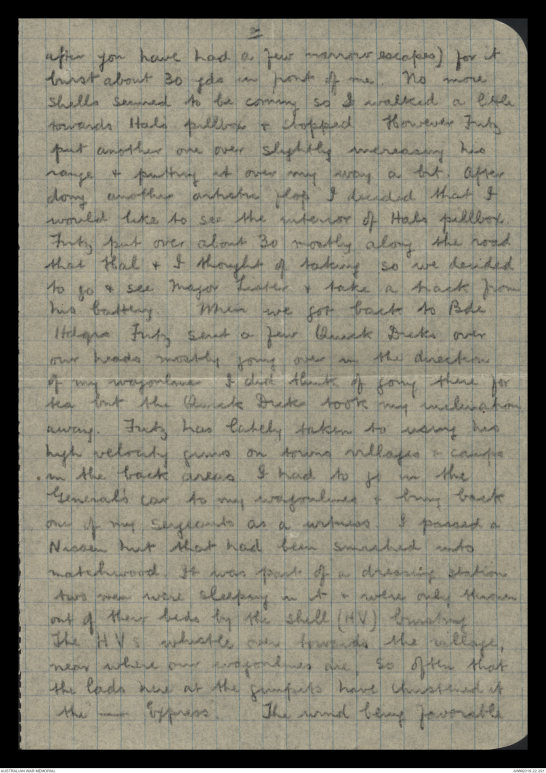 2
after you have had a few narrow escapes) for it
burst about 30 yds in front of me. No more
shells seemed to be coming so I walked a little
towards Hals pillbox & stopped However Fritz
put another one over slightly increasing his
range & putting it over my way a bit. After
doing another artistic flop I decided that I
would like to see the interior of Hals pillbox.
Fritz put over about 30 mostly along the road
that Hal & I thought of taking so we decided
to go & see Major & take a track from
his battery. When we got back to Bde
Hdqrs Fritz sent a few Quick Dicks over
our heads mostly going over in the direction
of my wagonlines I did think of going there for
tea but the Quick Dicks took my inclination
away. Fritz has lately taken to using his
high velocity guns on towns villages & camps
in the back areas. I had to go in the
General's car to my wagonlines & bring back
one of my Sergeants as a witness. I passed a
Nissen hut that had been smashed into
matchwood. It was part of a dressing station
two men were sleeping in it & were only thrown
out of their beds by the shell (HV) bursting
The HVs whistle over towards the village,
near where our wagonlines are, so often that
the lads here at the gunpits have christened it
the — Express. The wind being favorable
AUSTRALIAN WAR MEMORIAL